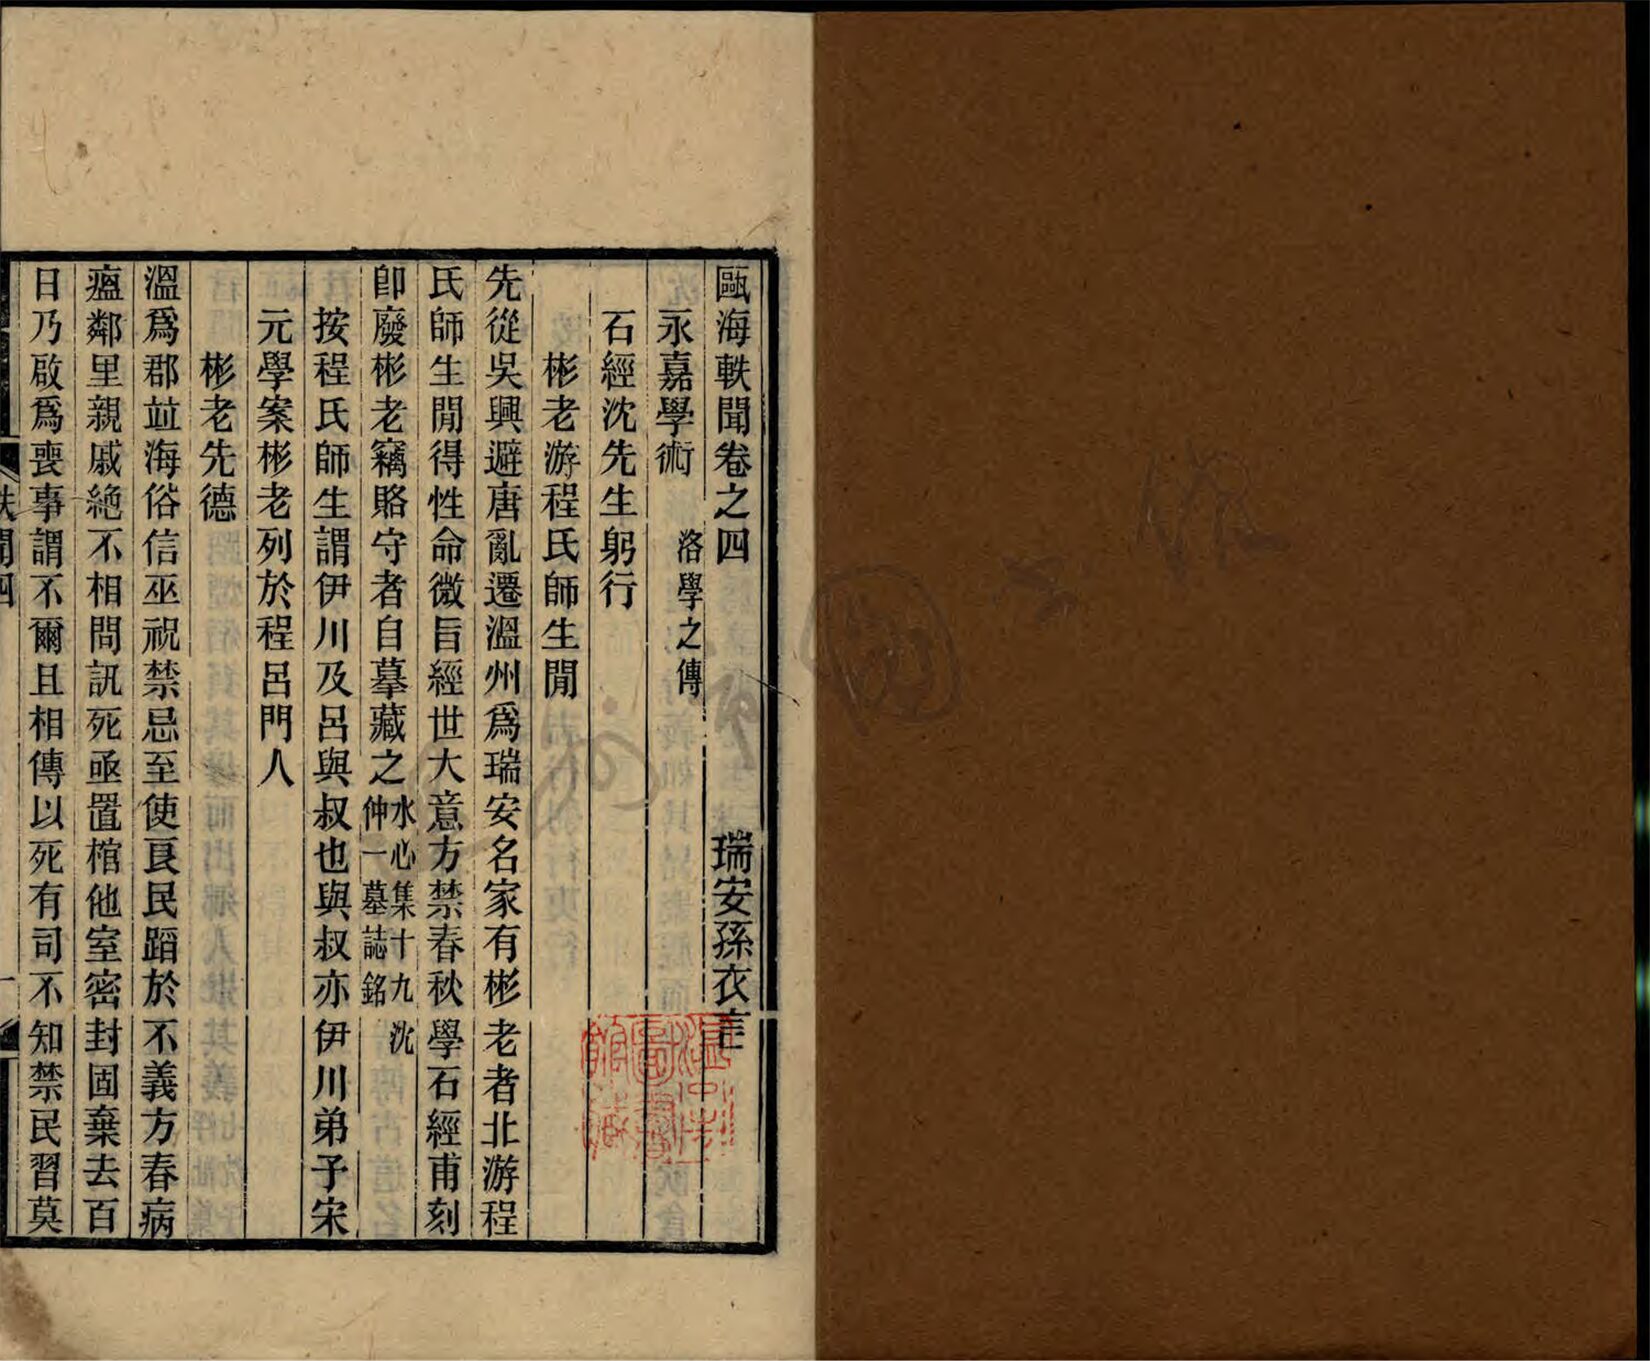 甌海軼聞卷之四
瑞安孫衣言
永嘉學術
洛學之傳
石經沈先生躬行
彬老游程氏師生閒
先從吳興避唐亂遷溫州爲瑞安名家有彬老者北游程
氏師生閒得性命微旨經世大意方禁春秋學石經甫刻
卽廢彬老竊賂守者自摹藏之水心集十九沈仲一墓誌銘
按程氏師生謂伊川及呂與叔也與叔亦伊川弟子宋
元學案彬老列於程呂門人
彬老先德
溫爲郡並海俗信巫祝禁忌至使良民蹈於不義方春病
瘟鄰里親戚絶不相問訊死亟置棺他室密封固棄去百
日乃啟爲喪事謂不爾且相傳以死有司不知禁民習莫
軼聞四
一